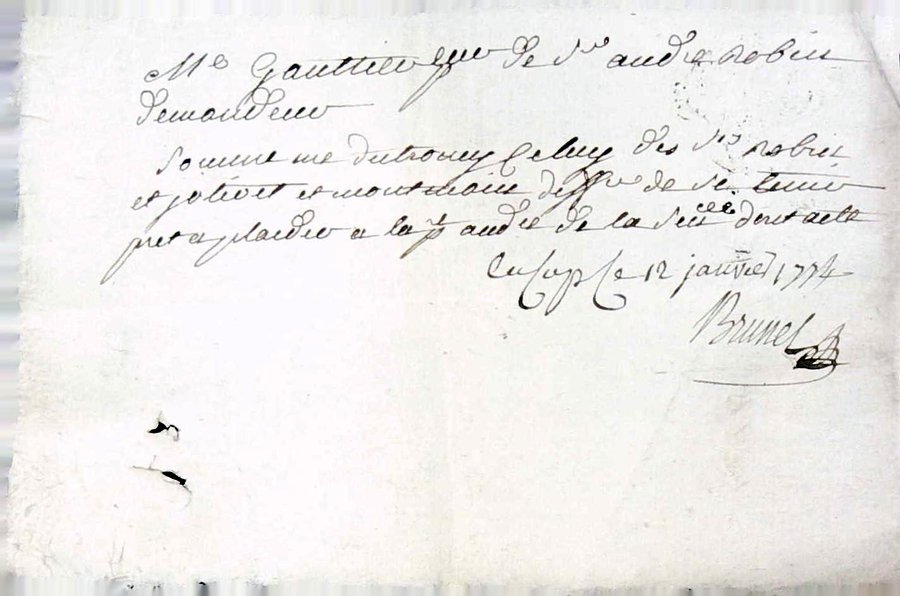 Me Gauttier pr de Sr andré robin
demandeur
Somme me dutroncy celuy des Srs robin
et jolivet et montmain deffrs de se tenir
pret a plaider a la p audce de la Sénéée dont acte
copie Ce 12 janvier 1774
Brunel